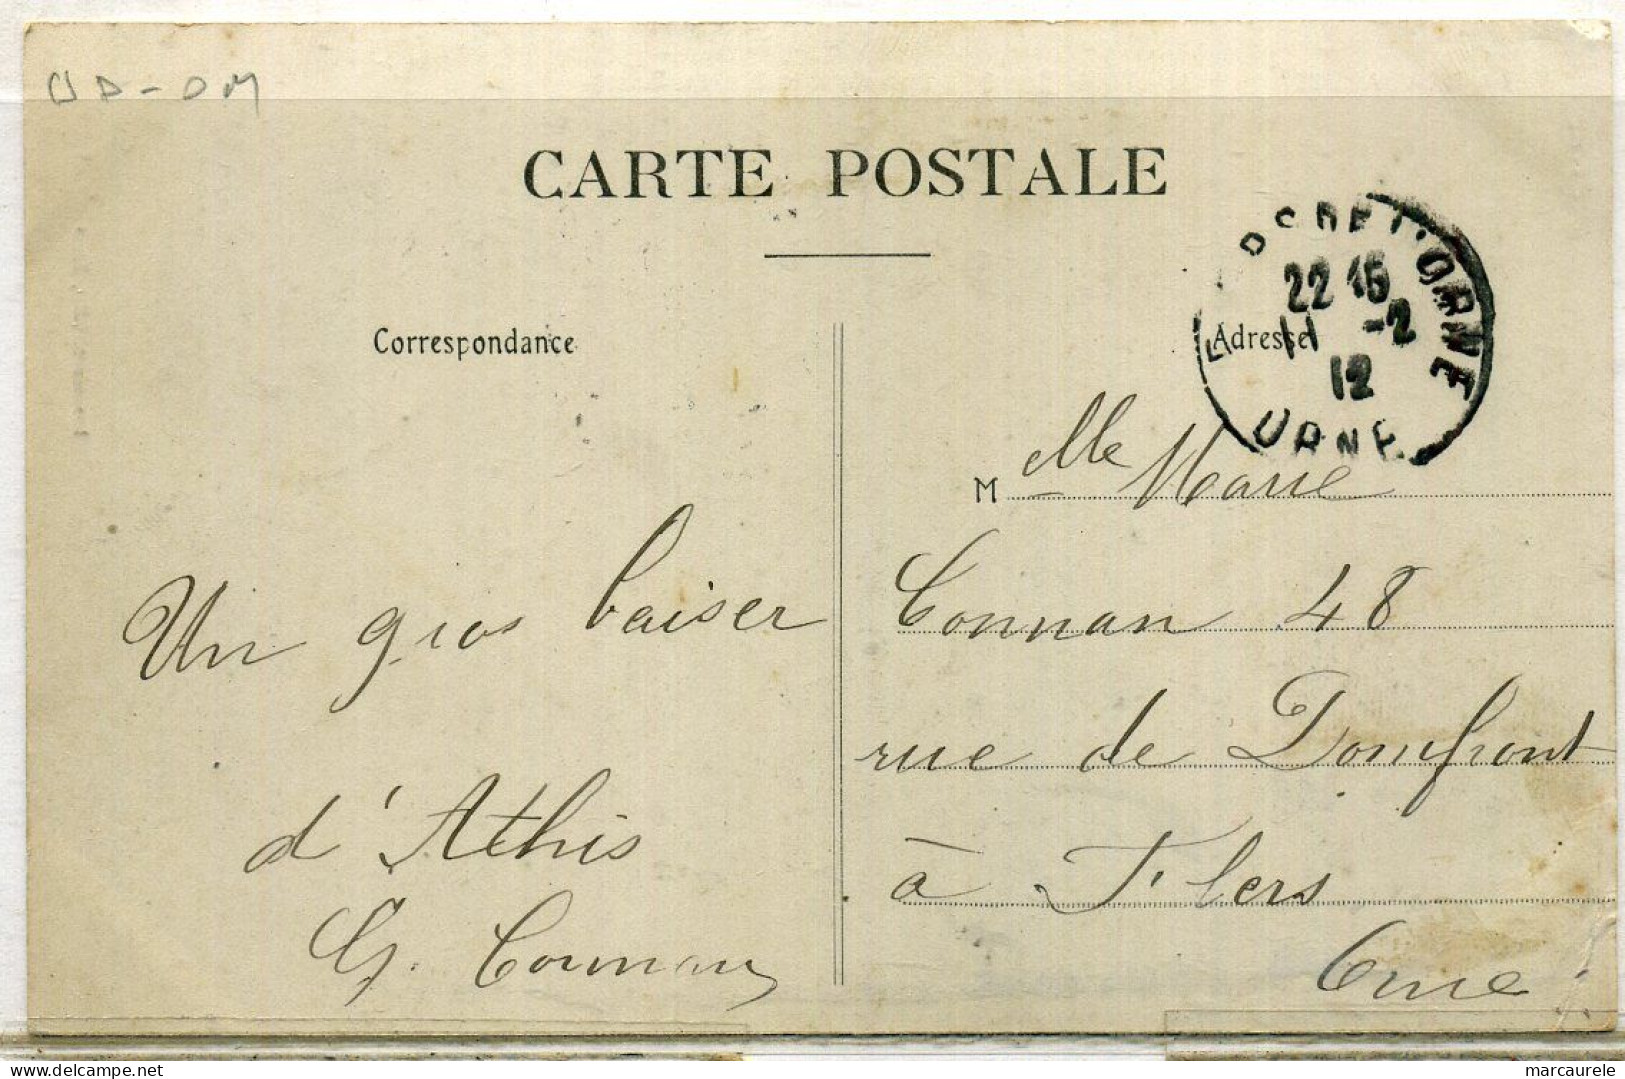 CARTE POSTALE
DE L'ORNE
22 15
11 -2
12
ORNE
Correspondance
Adresse
Mlle Marie
Connan 48
rue de Domfront
à Flers
Orne
Un gros baiser
d'Athis
G. Connan
delcampe.net
marcaurele